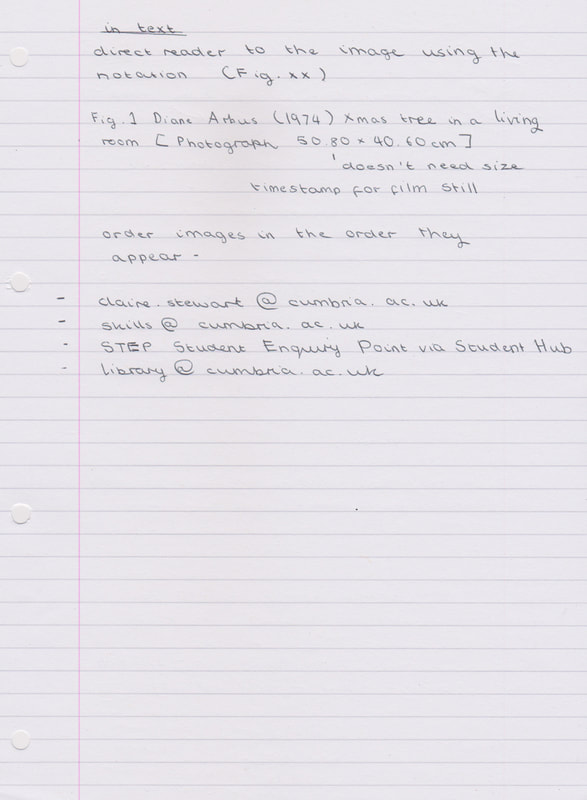 in text
direct reader to the image using the
notation (Fig.xx)
Fig.1 Diane Arbus (1974) Xmas tree in a living
room [Photograph 50.80 × 40.60cm]
'doesn't need size
timestamp for film still
order images in the order they
appear -
- claire.stewart @ cumbria.ac.uk
- skills@ cumbria.ac.uk
- STEP Student Enquiry Point via Student Hub
- library@ cumbria.ac.uk